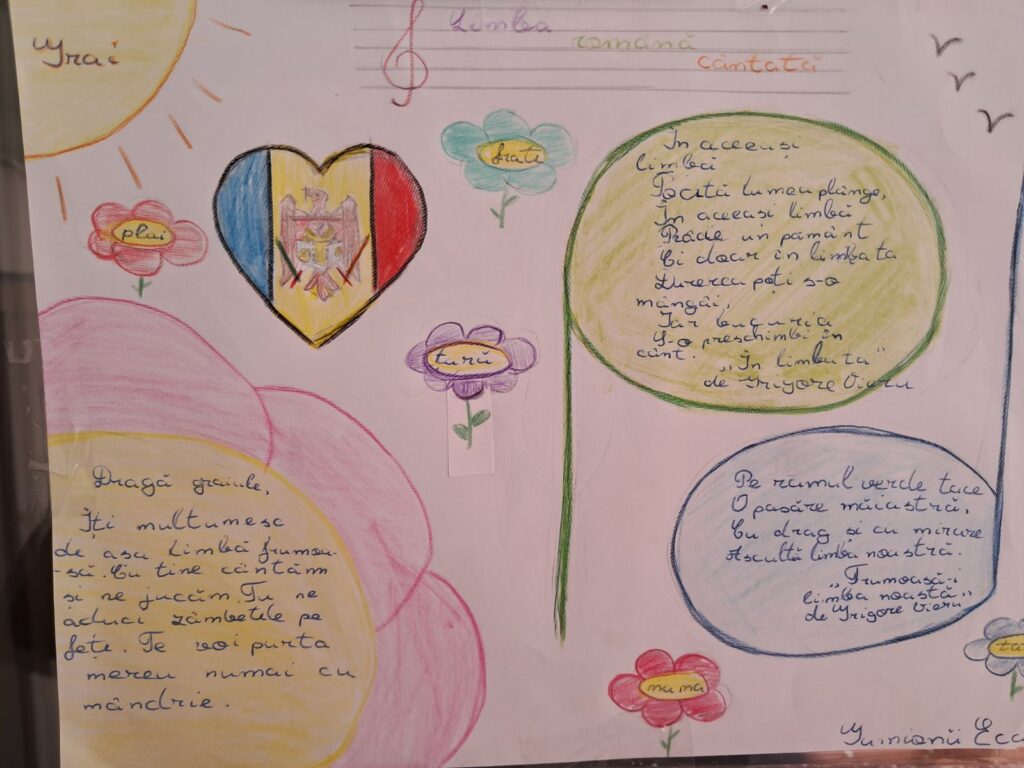 Limba
română
cântată
Grai
frate
plai
În aceeași
limbă
Toată lumea plânge,
În aceeasi limbă
Râde un pământ
Ci doar în limba ta
Durerea poți s-o
mângâi,
Iar bucuria
S-o preschimbi în
cânt.
„În limba ta"
de Grigore Vieru
tură
Dragă graiule,
Îți multumesc
de asa limbă frumoa-
-să. Cu tine cântăm
și ne jucăm. Tu ne
aduci zâmbetele pe
fețe. Te voi purta
mereu numai cu
mândrie.
Pe ramul verde tace
O pasăre măiastră,
Cu drag și cu mirare
Ascultă limba noastră.
„Frumoasă-i
limba noastă"
de Grigore Vieru
mama